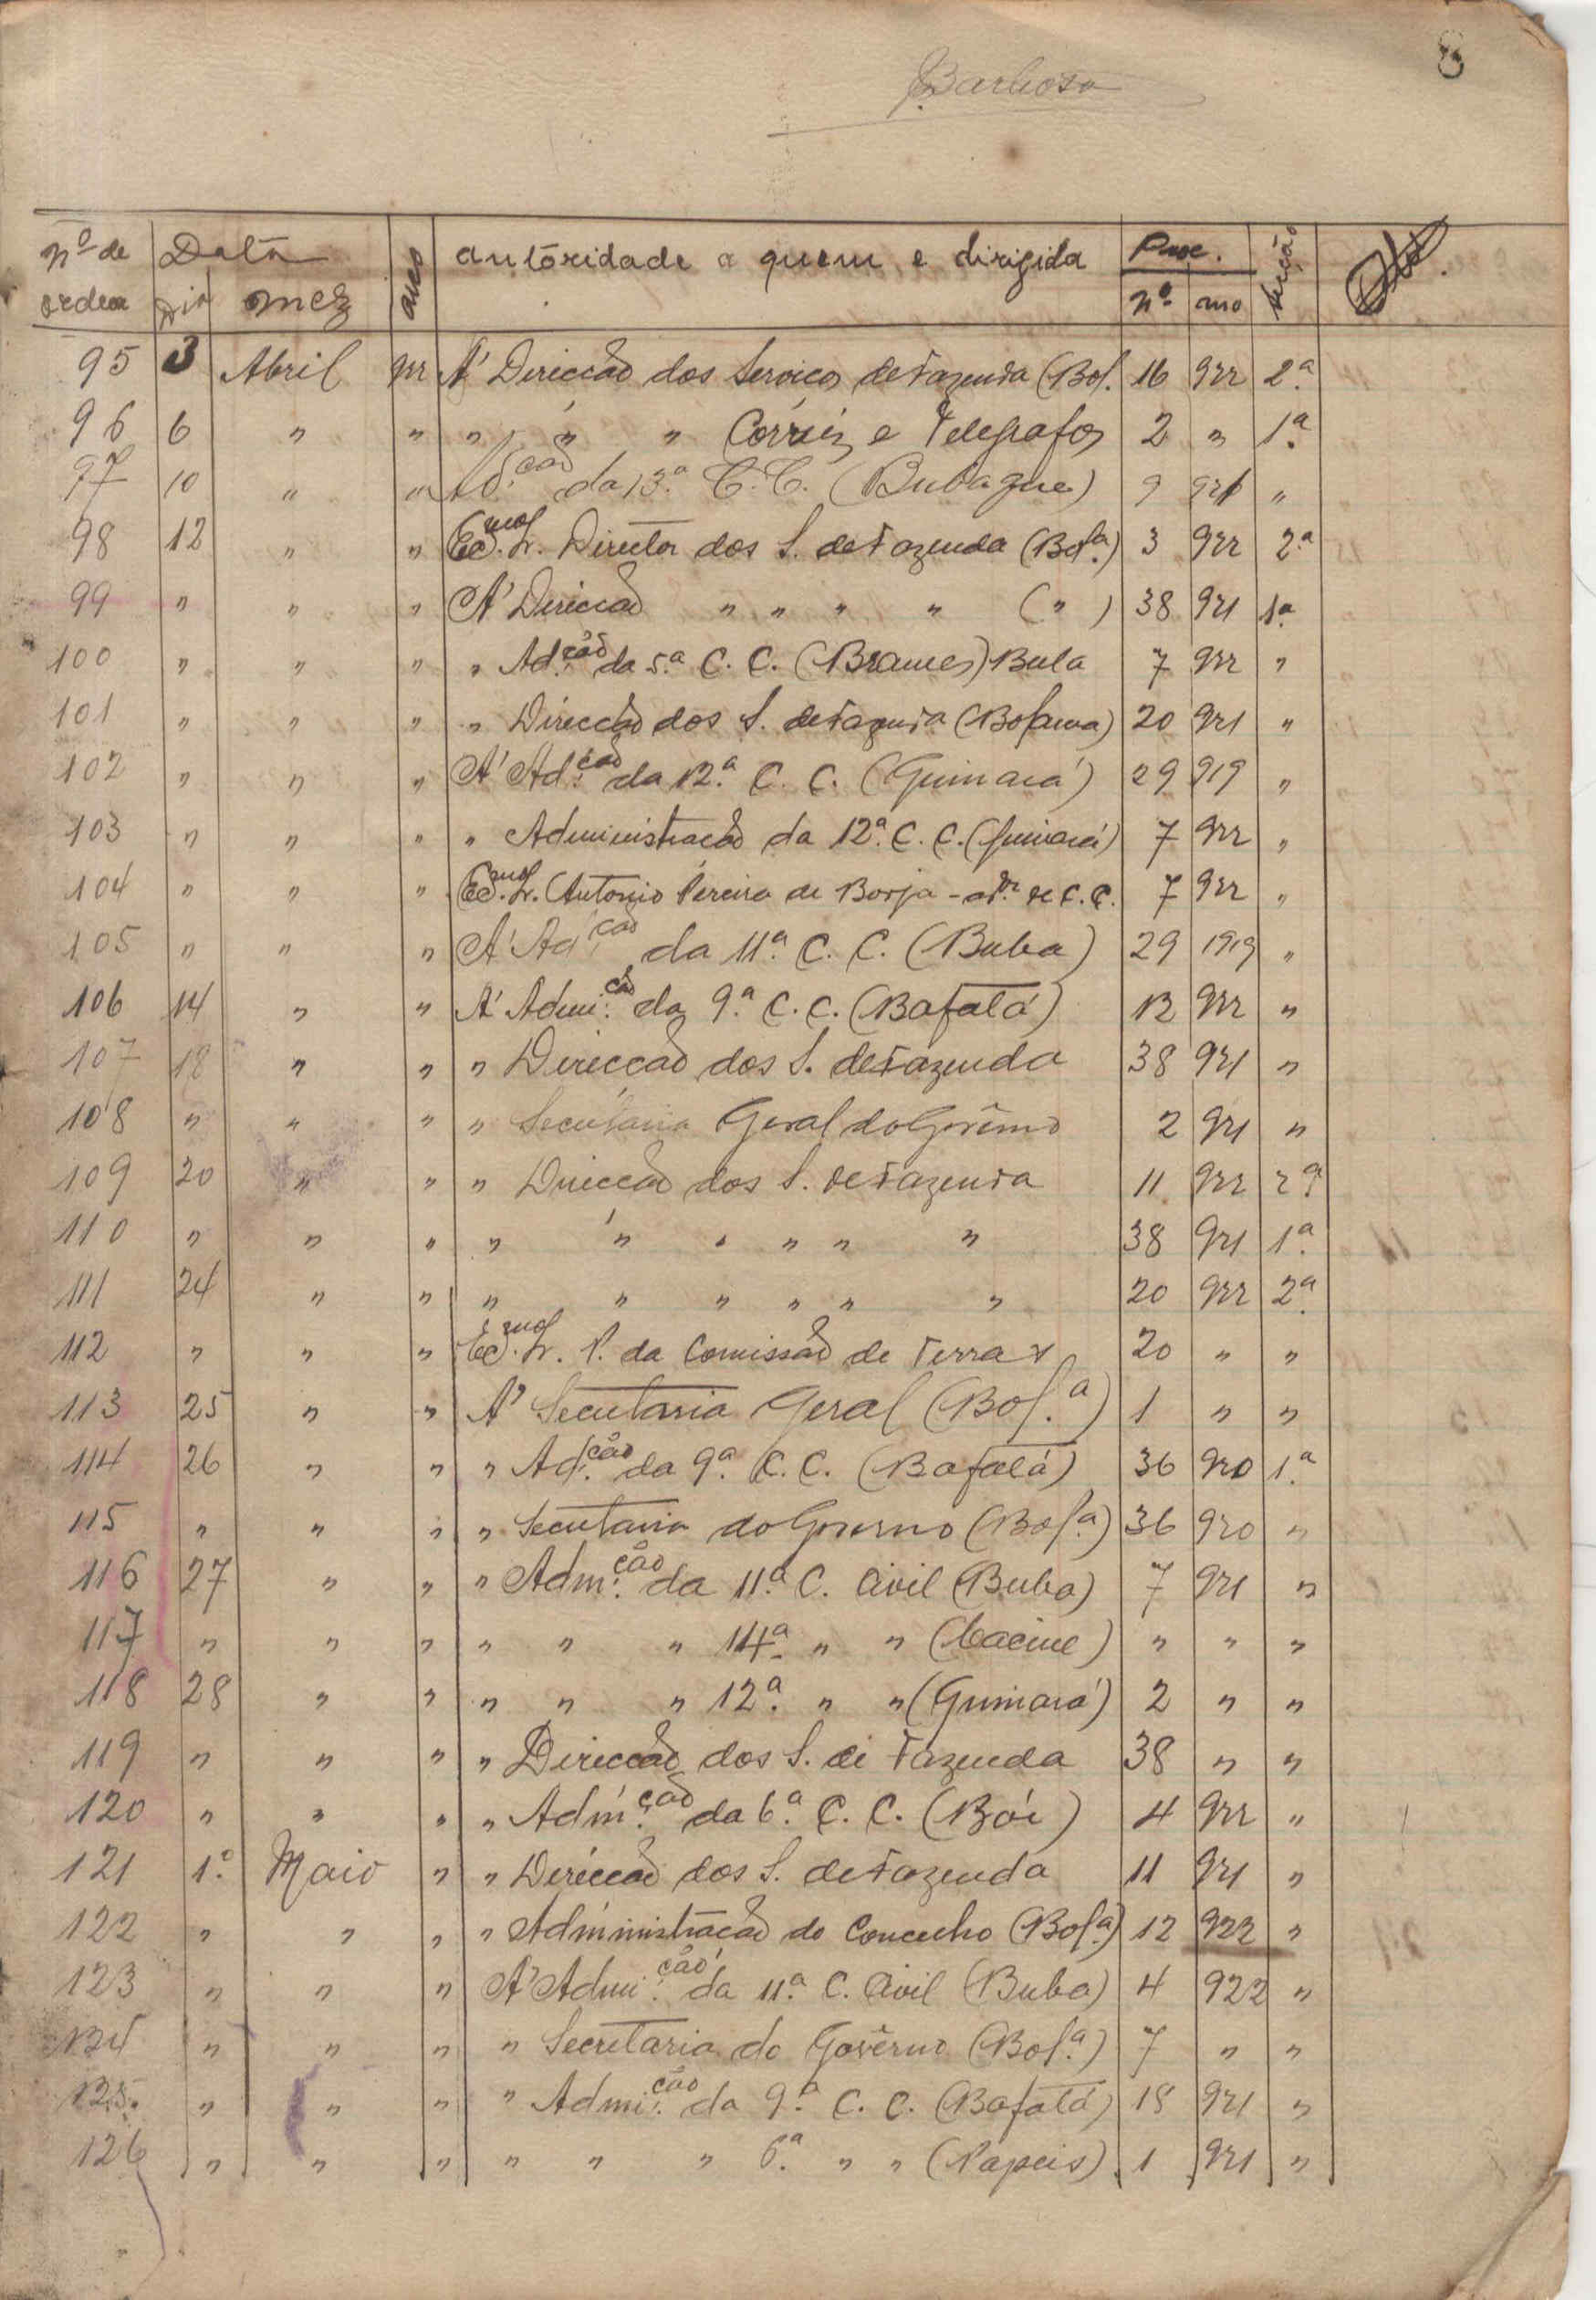 8
Barbosa
Nº de ordem Data Dia mez ano autoridade a quem e dirigida Proc. Nº ano secção Obs.
95 3 Abril 922 Á Direcção dos Serviços de Fazenda (Bol. 16 922 2ª
96 6 " " " " " Corrêis e Telegrafos 2 " 1ª
97 10 " " " Ad.ção da 13.ª C. C. (Bubaque) 9 921 "
98 12 " " Ex.mo Sr. Director dos S. de Fazenda (Bol.ª) 3 922 2ª
99 " " " Á Direcção " " " " ( " ) 38 921 1ª
100 " " " " Ad.ção da 5.ª C. C. (Brames) Bula 7 922 "
101 " " " " Direcção dos S. de Fazenda (Bolama) 20 921 "
102 " " " Á Ad.ção da 12.ª C. C. (Quinará) 29 919 "
103 " " " " Administração da 12ª. C. C. (Quinará) 7 922 "
104 " " " Ex.mo Sr. Antonio Pereira de Borja - ad.or de C. C. 7 922 "
105 " " " Á Ad.ção da 11ª. C. C. (Buba) 29 1919 "
106 14 " " Á Admi.ção da 9.ª C. C. (Bafatá) 12 922 "
107 18 " " " Direcção dos S. de Fazenda 38 921 "
108 " " " " Secretaria Geral do Govêrno 2 921 "
109 20 " " " Direcção dos S. de Fazenda 11 922 2ª
110 " " " " " " " " " 38 921 1ª.
111 24 " " " " " " " " 20 922 2ª.
112 " " " Ex.mo Sr. P. da Comissão de Terras 20 " "
113 25 " " Á Secretaria Geral (Bol.ª) 1 " "
114 26 " " " Ad.ção da 9ª. C. C. (Bafatá) 36 920 1.ª
115 " " " " Secretaria do Governo (Bol.ª) 36 920 "
116 27 " " " Adm.ção da 11ª. C. Civil (Buba) 7 921 "
117 " " " " " " 14ª " " (Cacine) " " "
118 28 " " " " " 12ª. " " (Quinará) 2 " "
119 " " " " Direcção dos S. de Fazenda 38 " "
120 " " " " Adm.ção da 6.ª C. C. (Bói) 4 922 "
121 1.º Maio " " Direcção dos S. de Fazenda 11 921 "
122 " " " " Administração do Concelho (Bol.ª) 12 922 "
123 " " " Á Admi.ção da 11.ª C. Civil (Buba) 4 922 "
124 " " " " Secretaria do Govêrno (Bol.ª) 7 " "
125. " " " " Admi.ção da 9.ª C. C. (Bafatá) 18 921 "
126 " " " " " " 6.ª " " (Papeis) 1 921 "